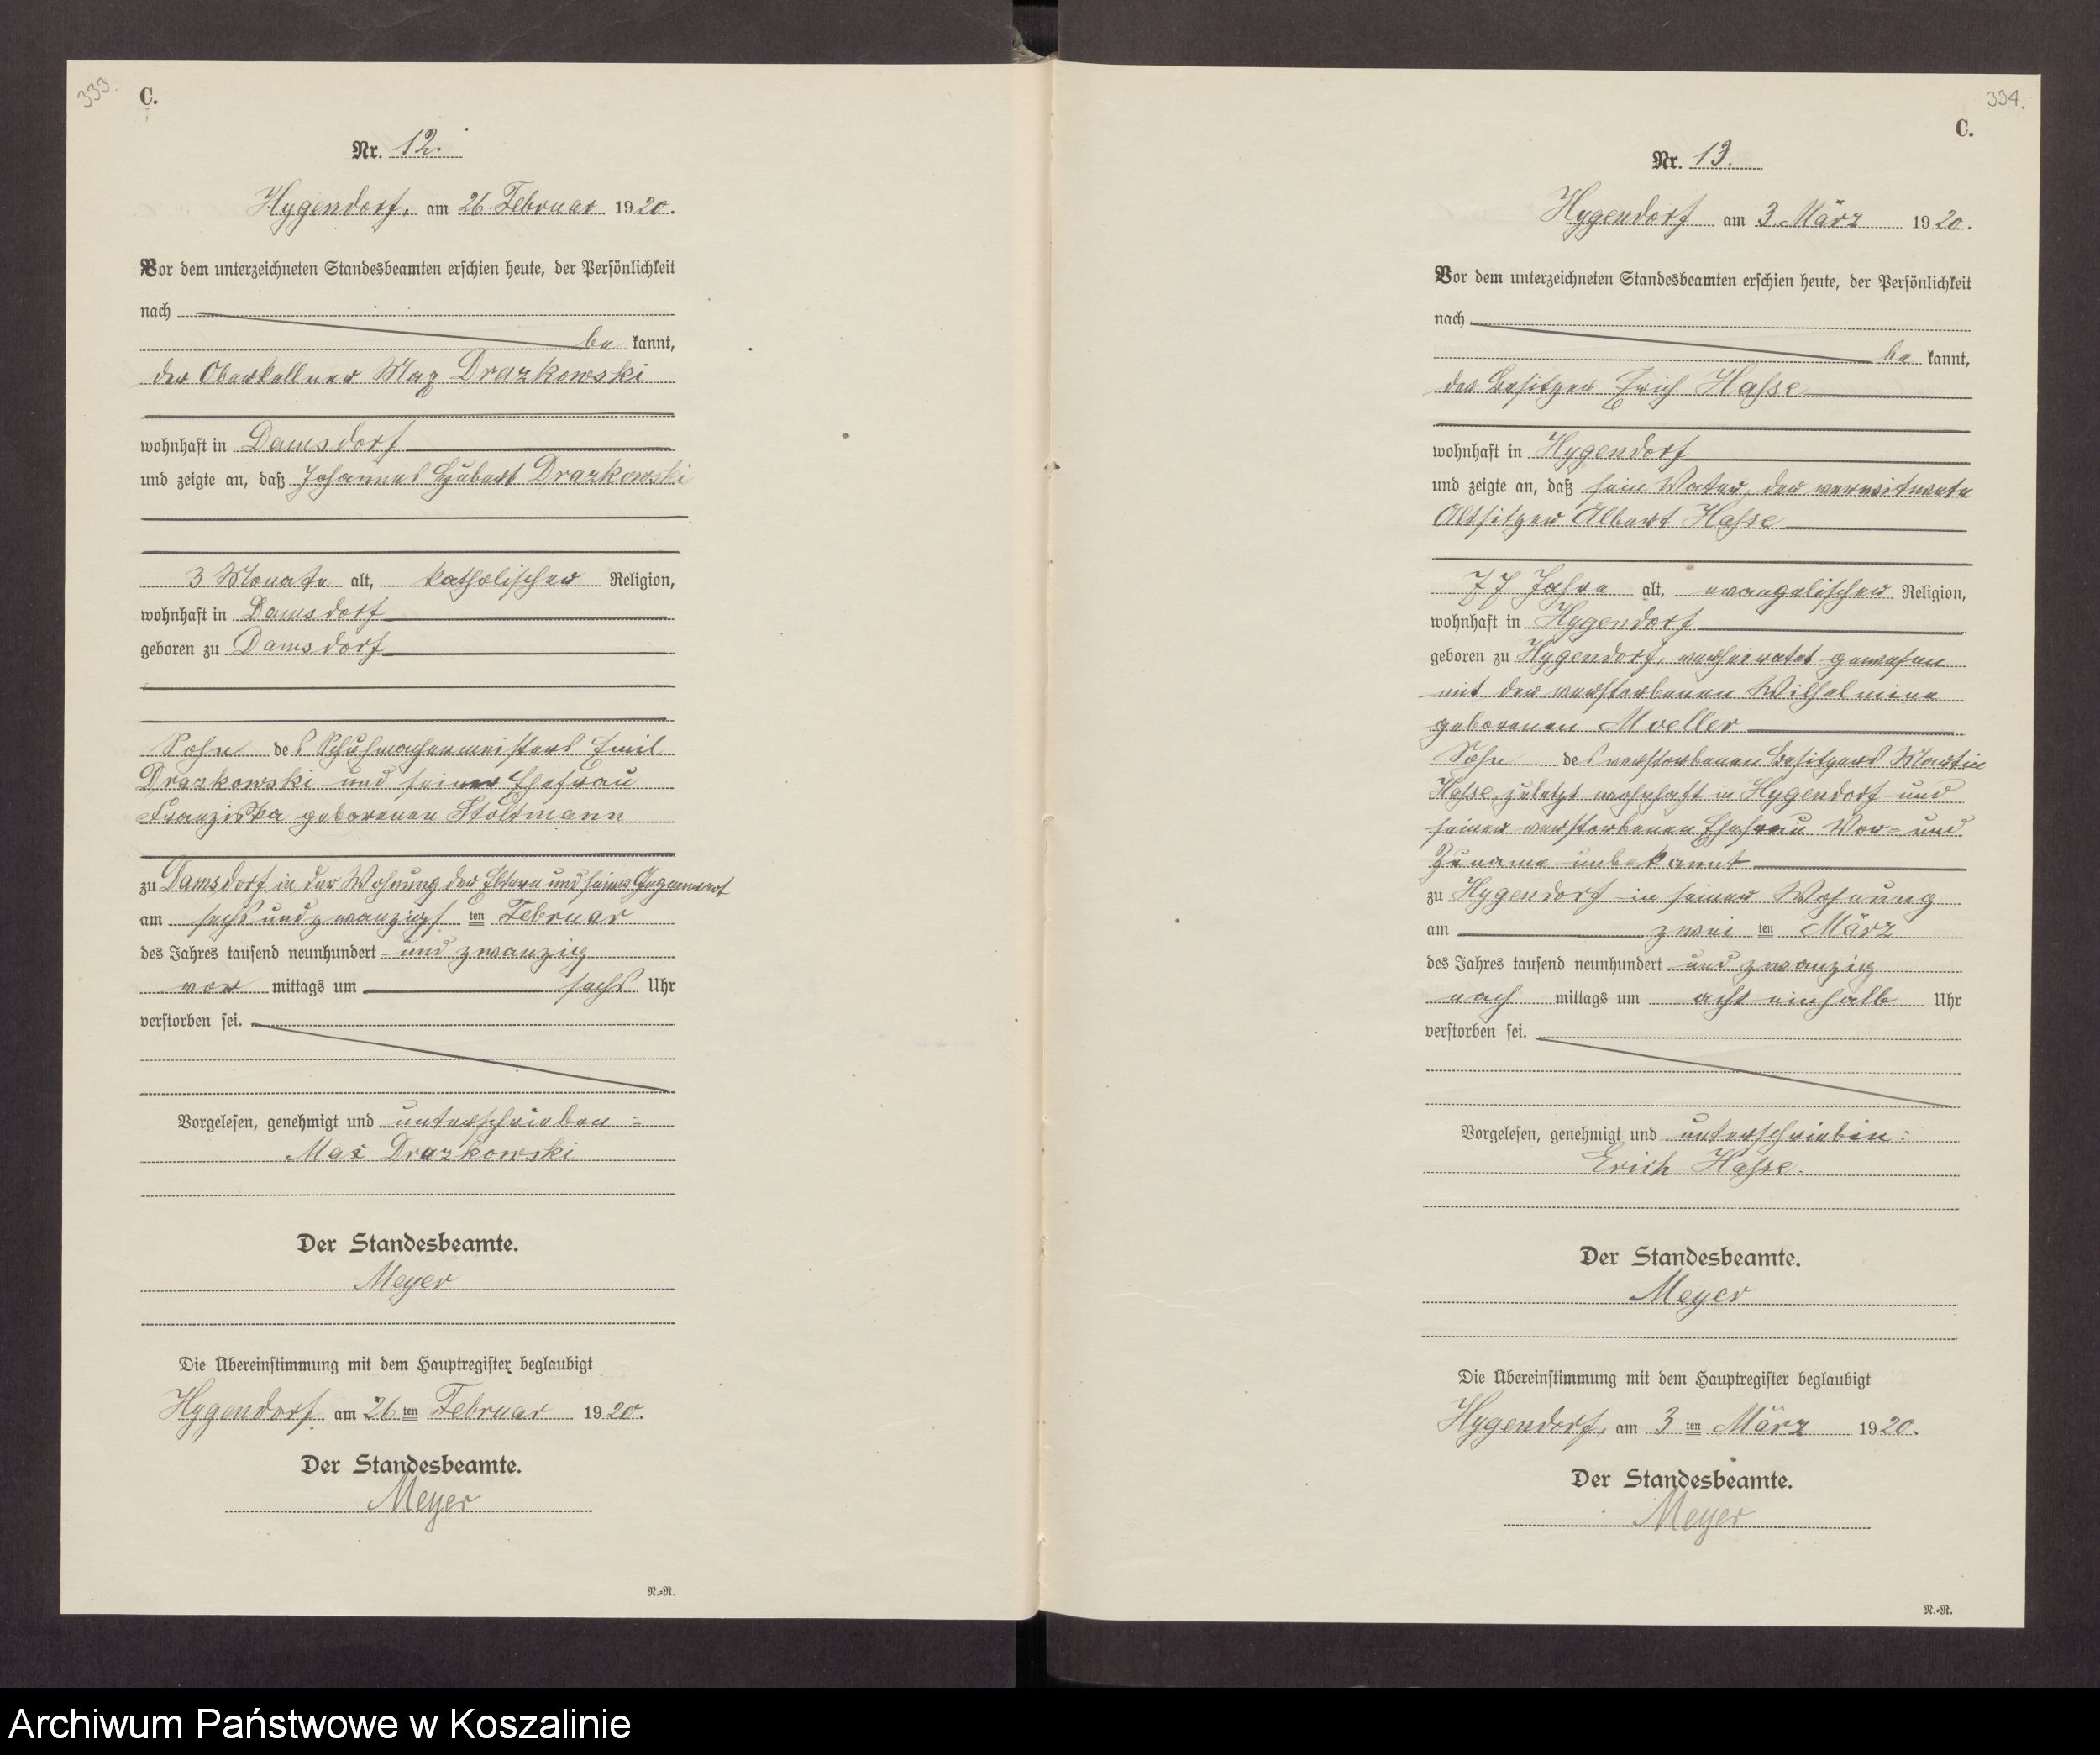 333.
C.
Nr. 12.
Hygendorf, am 26 Februar 1920.
Vor dem unterzeichneten Standesbeamten erschien heute, der Persönlichkeit
nach
be kannt,
der Oberkellner Max Drazkowski
wohnhaft in Damsdorf
und zeigte an, daß Johannes Hubert Drazkowski
3 Monate alt, katholischer Religion,
wohnhaft in Damsdorf
geboren zu Damsdorf
Sohn des Schuhmachermeisters Emil
Drazkowski und seiner Ehefrau
Franziska geborenen Stoltmann
zu Damsdorf in der Wohnung der Eltern und seiner Gegenwart
am sechsundzwanzigs ten Februar
des Jahres tausend neunhundert und zwanzig
vor mittags um sechs Uhr
verstorben sei.
Vorgelesen, genehmigt und unterschrieben
Max Drazkowski
Der Standesbeamte.
Meyer
Die Übereinstimmung mit dem Hauptregister beglaubigt
Hygendorf am 26 ten Februar 1920.
Der Standesbeamte.
Meyer
N.=R.
334.
C.
Nr. 13.
Hygendorf am 3 März 1920.
Vor dem unterzeichneten Standesbeamten erschien heute, der Persönlichkeit
nach
be kannt,
der Besitzer Erich Hasse
wohnhaft in Hygendorf
und zeigte an, daß sein Vater, der verwitwete
Altsitzer Albert Hasse
77 Jahre alt, evangelischer Religion,
wohnhaft in Hygendorf
geboren zu Hygendorf, verheiratet gewesen
mit der verstorbenen Wilhelmine
geborenen Moeller
Sohn des verstorbenen Besitzers Martin
Hasse, zuletzt wohnhaft in Hygendorf und
seiner verstorbenen Ehefrau Vor= und
Zuname unbekannt
zu Hygendorf in seiner Wohnung
am zwei ten März
des Jahres tausend neunhundert und zwanzig
nach mittags um acht einhalb Uhr
verstorben sei.
Vorgelesen, genehmigt und unterschrieben:
Erich Hasse.
Der Standesbeamte.
Meyer
Die Übereinstimmung mit dem Hauptregister beglaubigt
Hygendorf, am 3 ten März 1920.
Der Standesbeamte.
Meyer
N.=R.
Archiwum Państwowe w Koszalinie